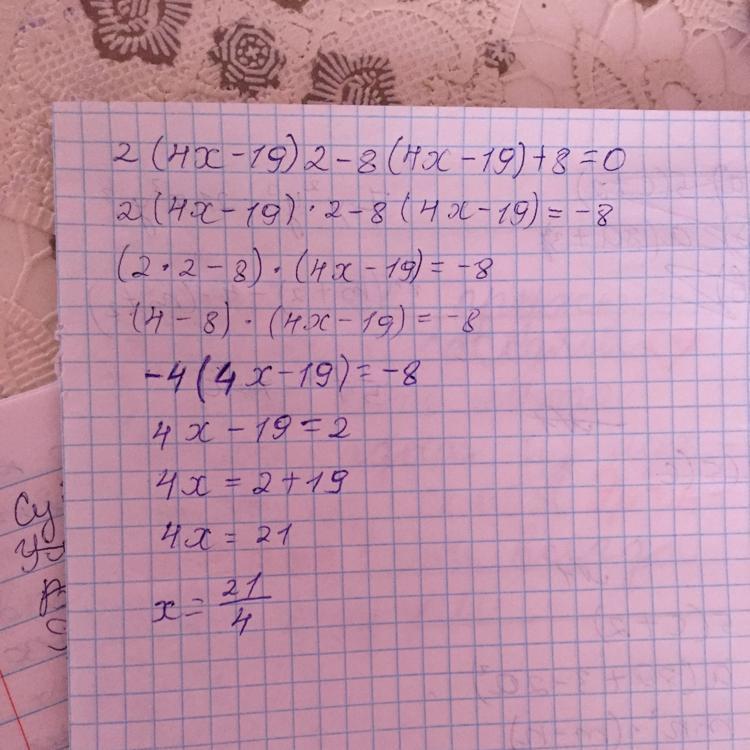 2 (4x - 19) 2 - 8 (4x - 19) + 8 = 0
2 (4x - 19) · 2 - 8 (4x - 19) = -8
(2 · 2 - 8) · (4x - 19) = -8
(4 - 8) · (4x - 19) = -8
-4 (4x - 19) = -8
4x - 19 = 2
4x = 2 + 19
4x = 21
x = 21/4
Су